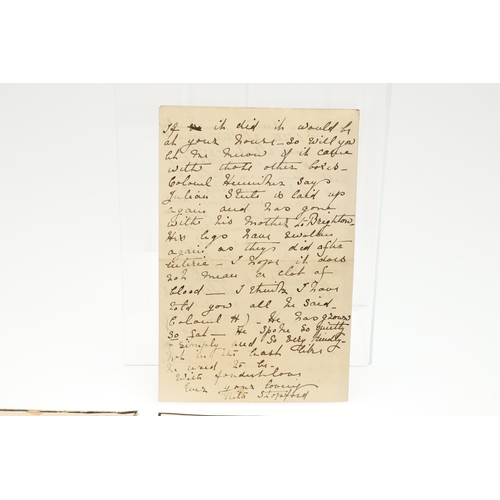 If it did it would be
at your house - so will you
let me know if it came
with those other boxes -
Colonel says
Julian is laid up
again and has gone
with his mother to Brighton -
His legs have swollen
again as they did after
enteric - I hope it does
not mean a clot of
blood - I think I have
told you all he said -
(Colonel H) - He has grown
so fat - He spoke so quietly
& simply and so very kindly -
not in the least like
he used to be -
With fondest love
Ever your loving
Stopford